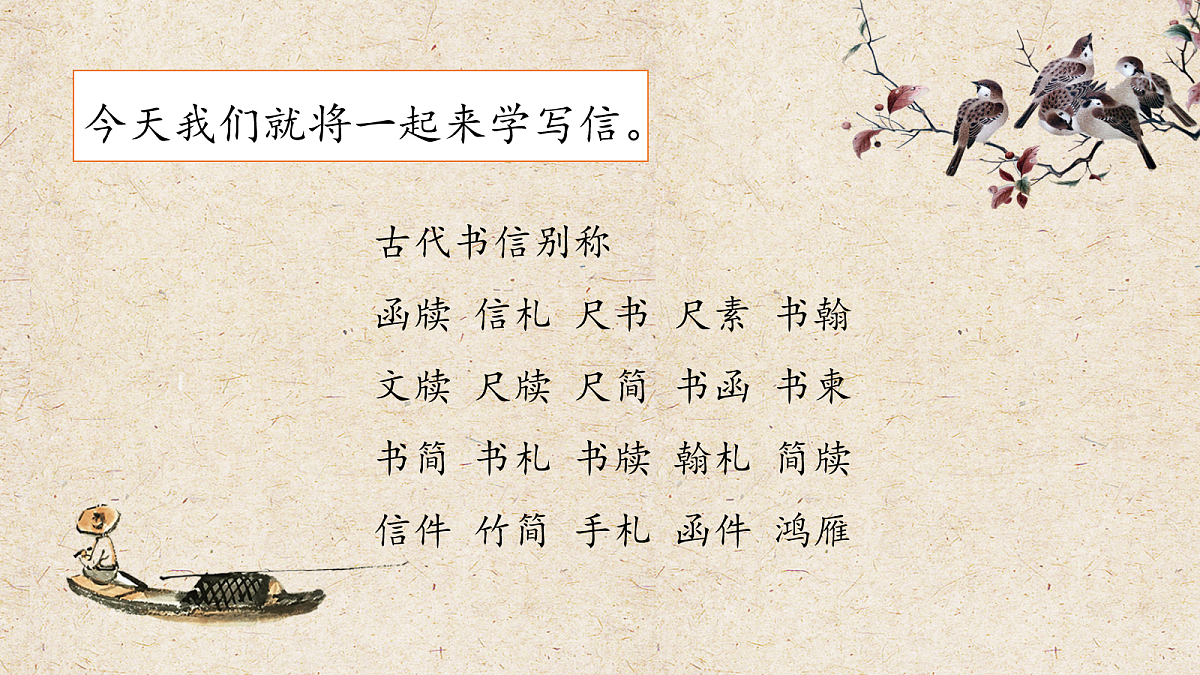 今天我们就将一起来学写信。
古代书信别称
函牍 信札 尺书 尺素 书翰
文牍 尺牍 尺简 书函 书柬
书简 书札 书牍 翰札 简牍
信件 竹简 手札 函件 鸿雁